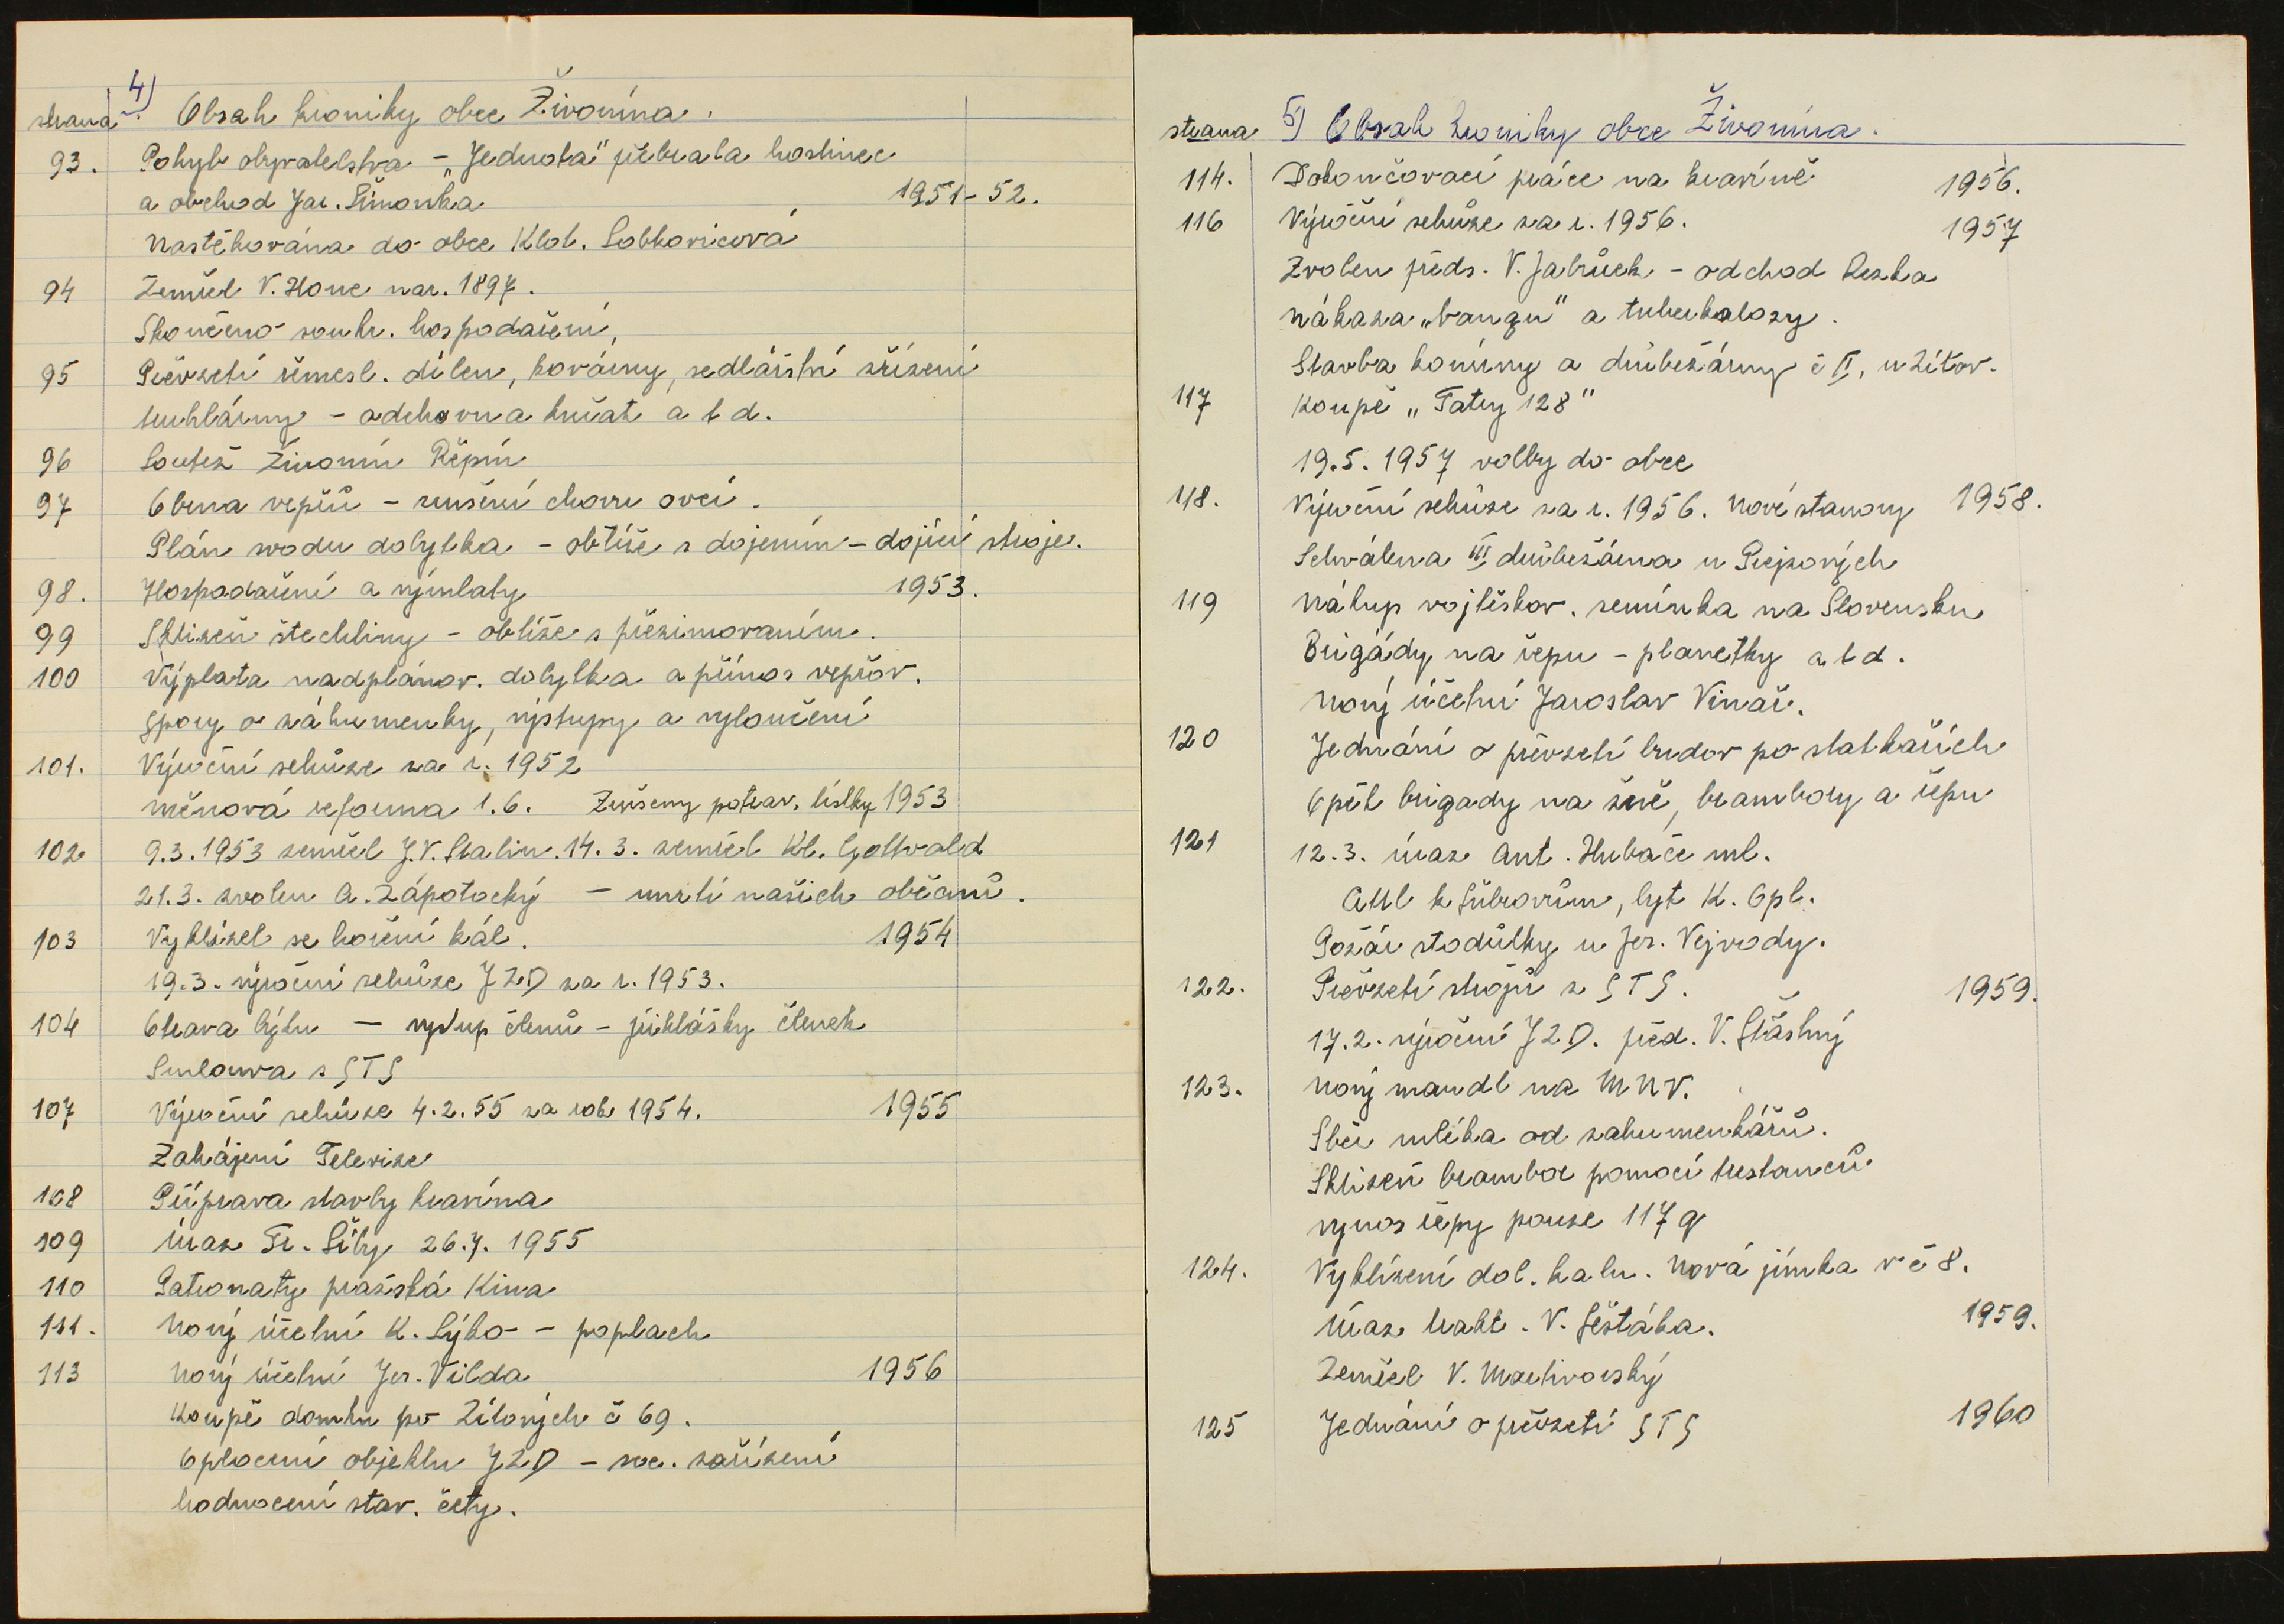 4)
strana Obsah kroniky obce Živonína.
93. Pohyb obyvatelstva - „Jednota" přebrala hostinec
a obchod Jar. Šimonka 1951-52.
Nastěhována do obce Klot. Lobkovicová
94 Zemřel V. Honc nar. 1897.
Skončeno soukr. hospodaření,
95 Převzetí řemesl. dílen, kovárny, sedlářství zřízení
truhlárny - odchovna kuřat a t d.
96 Soutěž Živonín Řepín
97 Obrna vepřů - zrušení chovu ovcí.
Plán svodu dobytka - obtíže s dojením - dojící stroje.
98. Hospodaření a výmlaty 1953.
99 Sklizeň štechliny - obtíže s přezimováním.
100 Výplata nadplánov. dobytka a přínos vepřov.
Spory o záhumenky, výstupy a vyloučení
101. Výroční schůze za r. 1952
měnová reforma 1.6. Zrušeny potrav. lístky 1953
102 9.3.1953 zemřel J.V. Stalin. 14.3. zemřel Kl. Gottwald
21.3. zvolen A. Zápotocký - úmrtí našich občanů.
103 Vyklízel se hoření kál. 1954
19.3. výroční schůze JZD za r. 1953.
104 Oprava bytu - výstup členů - přihlášky členek
Smlouva s STS
107 Výroční schůze 4.2.55 za rok 1954. 1955
Zahájení Televise
108 Příprava stavby kravína
109 úraz Fr. Šíby 26.7. 1955
110 Patronaty pražská Kina
111. Nový účetní K. Sýko - poplach
113 Nový účetní Jar. Vilda 1956
Koupě domku po Zítových č 69.
Oplocení objektu JZD - soc. zařízení
hodnocení stav. čety.
strana 5) Obsah kroniky obce Živonína.
114. Dokončovací práce na kravíně 1956.
116 Výroční schůze za r. 1956. 1957
Zvolen předs. V. Jabůrek - odchod Reska
nákaza „bangu" a tuberkulosy.
Stavba koníny a drůbežárny č II, u Zítov.
117 Koupě „Tatry 128"
19.5. 1957 volby do obce
118. Výroční schůze za r. 1956. Nové stanovy 1958.
Schválena III drůbežárna u Prejzových
119 Nákup vojtěškov. semínka na Slovensku
Brigády na řepu - planetky a t d.
Nový účetní Jaroslav Vinař.
120 Jednání o převzetí budov po statkářích
Opět brigady na žně, brambory a řepu
121 12.3. úraz Ant. Hubače ml.
k Šubrovům, byt K. Opl.
Požár stodůlky u Jar. Vejvody.
122. Převzetí strojů z STS. 1959.
17.2. výroční JZD. před. V. Šťastný
123. Nový mandl na MNV.
Sběr mléka od zahumenkářů.
Sklizeň brambor pomocí trestanců
výnos řepy pouze 117 q
124. Vyklízení dol. kalu. Nová jímka v č 8.
Úraz trakt. V. Šestáka. 1959.
Zemřel V. Martinovský
125 Jednání o převzetí STS 1960